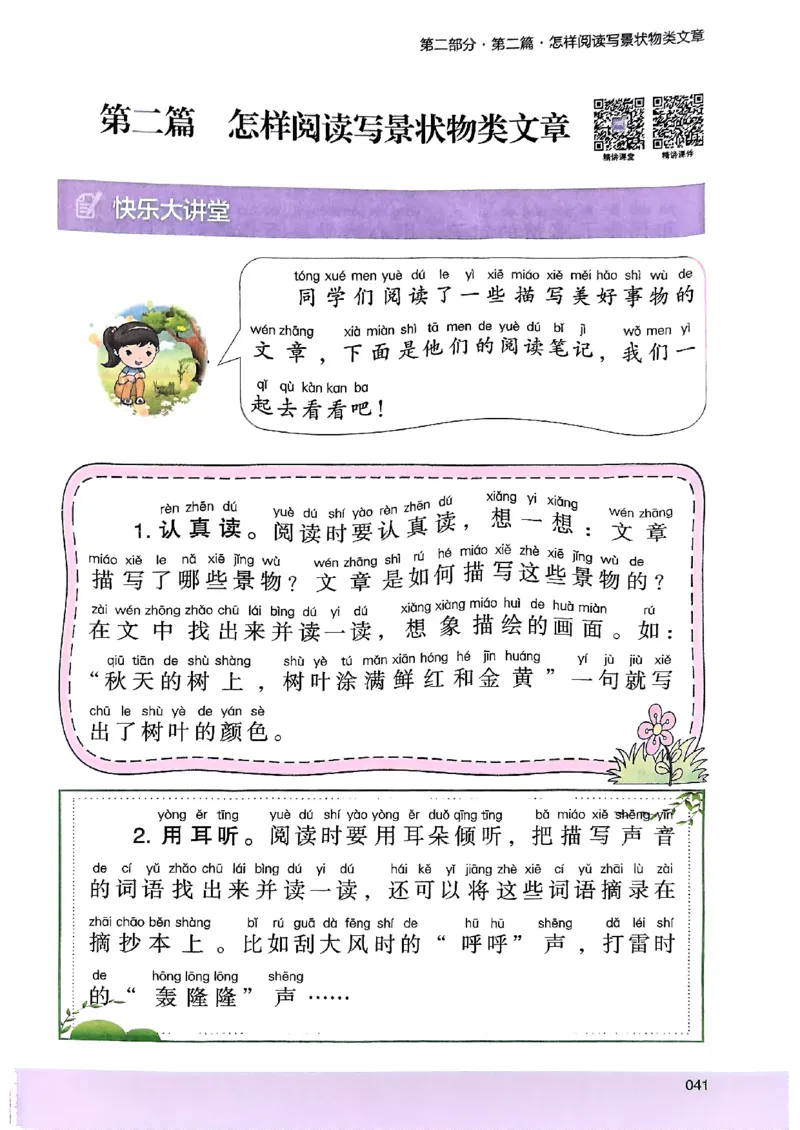 第二部分·第二篇·怎样阅读写景状物类文章
第二篇 怎样阅读写景状物类文章
精讲课堂 精讲课件
快乐大讲堂
tóng xué men yuè dú le yì xiē miáo xiě měi hǎo shì wù de
同学们阅读了一些描写美好事物的
wén zhāng xià miàn shì tā men de yuè dú bǐ jì wǒ men yì
文章，下面是他们的阅读笔记，我们一
qǐ qù kàn kan ba
起去看看吧！
rèn zhēn dú yuè dú shí yào rèn zhēn dú xiǎng yi xiǎng wén zhāng
1. 认真读。阅读时要认真读，想一想：文章
miáo xiě le nǎ xiē jǐng wù wén zhāng shì rú hé miáo xiě zhè xiē jǐng wù de
描写了哪些景物？文章是如何描写这些景物的？
zài wén zhōng zhǎo chū lái bìng dú yi dú xiǎng xiàng miáo huì de huà miàn rú
在文中找出来并读一读，想象描绘的画面。如：
qiū tiān de shù shàng shù yè tú mǎn xiān hóng hé jīn huáng yí jù jiù xiě
“秋天的树上，树叶涂满鲜红和金黄”一句就写
chū le shù yè de yán sè
出了树叶的颜色。
yòng ěr tīng yuè dú shí yào yòng ěr duǒ qīng tīng bǎ miáo xiě shēng yīn
2. 用耳听。阅读时要用耳朵倾听，把描写声音
de cí yǔ zhǎo chū lái bìng dú yi dú hái kě yǐ jiāng zhè xiē cí yǔ zhāi lù zài
的词语找出来并读一读，还可以将这些词语摘录在
zhāi chāo běn shàng bǐ rú guā dà fēng shí de hū hū shēng dǎ léi shí
摘抄本上。比如刮大风时的“呼呼”声，打雷时
de hōng lōng lōng shēng
的“轰隆隆”声……
041